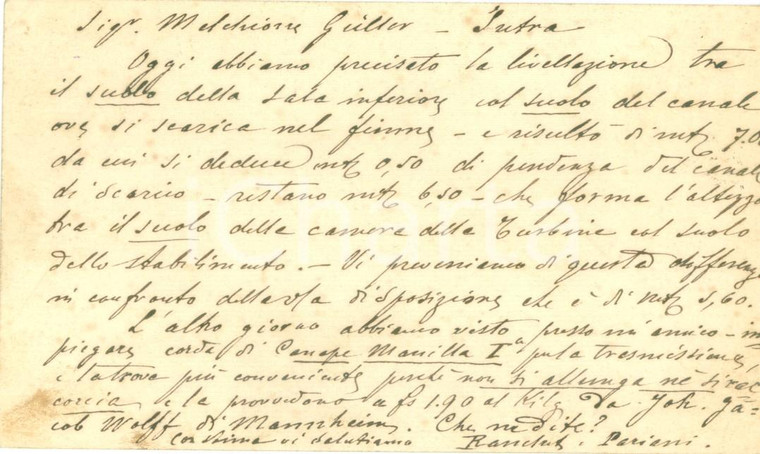 Sigr. Melchiorre Güller - Intra
Oggi abbiamo precisato la livellazione tra
il suolo della sala inferiore col suolo del canale
ove si scarica nel fiume - e risultò di mt 7.00
da cui si deduce mt 0,50 di pendenza del canale
di scarico - restano mt 6,50 - che forma l'altezza
tra il suolo della camera della Turbine col suolo
dello stabilimento. - Vi preveniamo di questa differenza
in confronto della vta disposizione che è di mt 5,60.
L'altro giorno abbiamo visto presso un amico - im
piegare corda di Canape Manilla Iª per la tresmissione,
e la trova più conveniente perchè non si allunga nè si rac
corcia e la provvedono a fs 1.90 al Kilo da Joh. Ja=
cob Wolff di Mannheim. Che ne dite?
Con stima vi salutiamo Pariani.